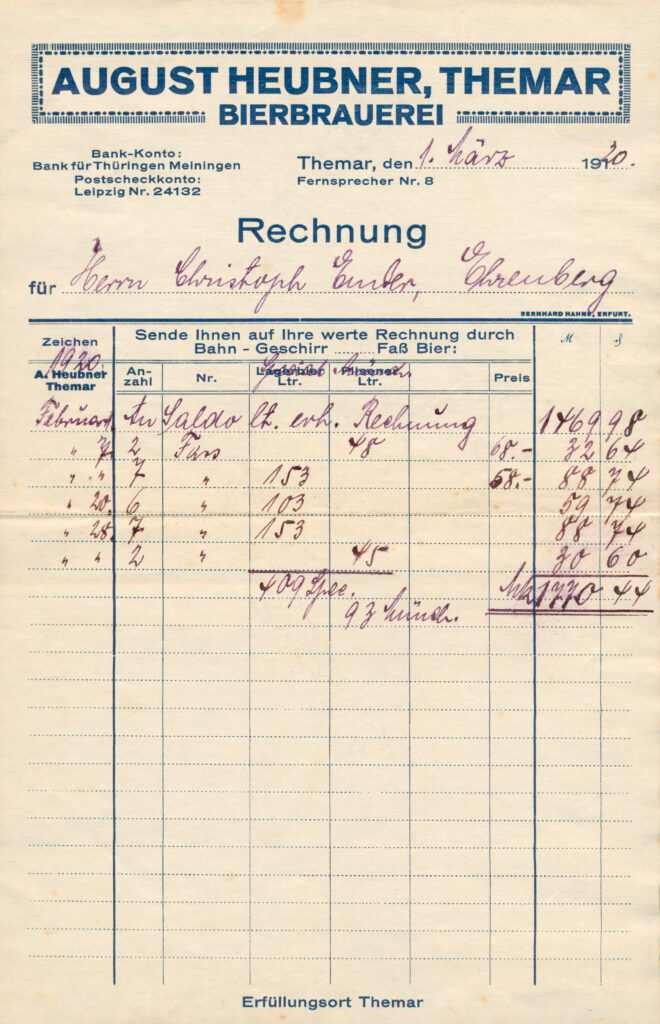 AUGUST HEUBNER, THEMAR
BIERBRAUEREI
Bank-Konto:
Bank für Thüringen Meiningen
Postscheckkonto:
Leipzig Nr. 24132
Themar, den 1. März 1920.
Fernsprecher Nr. 8
Rechnung
für Herrn Christoph Ender, Ehrenberg
BERNHARD HAHNE, ERFURT.
Zeichen
1920.
A. Heubner
Themar
Sende Ihnen auf Ihre werte Rechnung durch
Bahn - Geschirr ........ Faß Bier:
M
An-
zahl
Nr.
Lagerbier
Ltr.
Pilsener
Ltr.
Preis
Februar An Saldo lt. erh. Rechnung 1469 98
" 7. 2 Fass 48 68.- 32 64
" " 7 " 153 58.- 88 74
" 20. 6 " 103 59 74
" 28. 7 " 153 88 74
" " 2 " 45 30 60
409 Spec. Mk 1770 44
93 Münch.
Erfüllungsort Themar